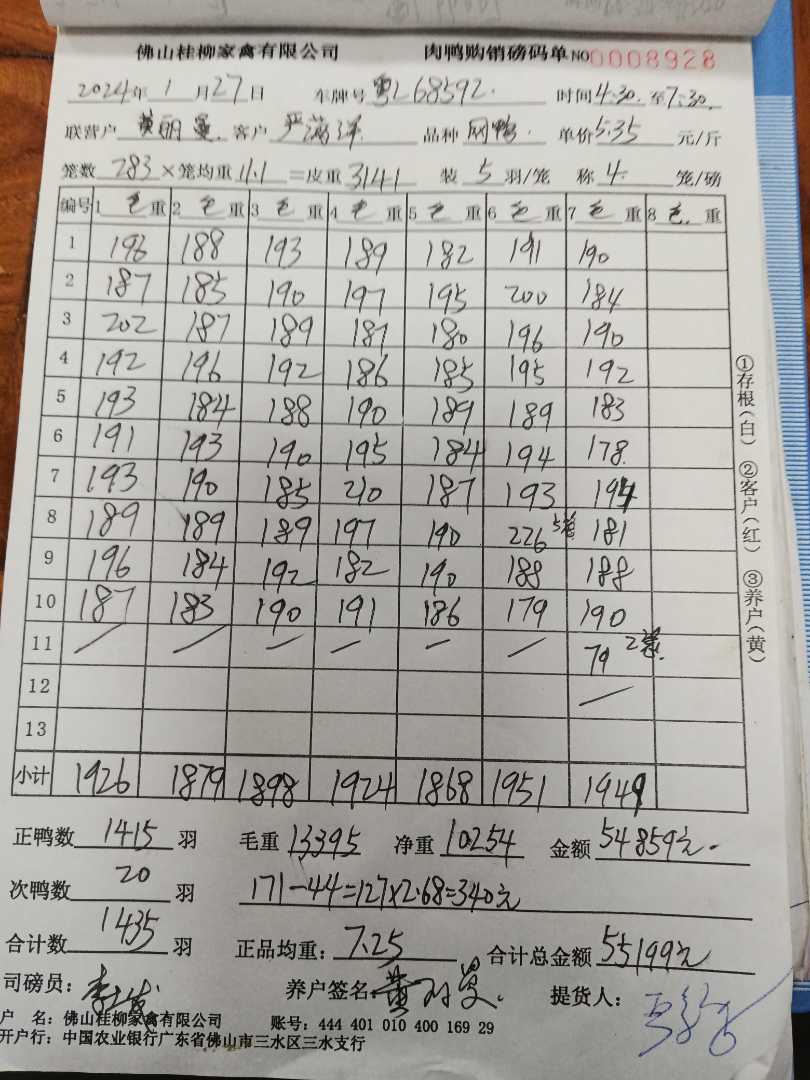 佛山桂柳家禽有限公司 肉鸭购销磅码单 NO 0008928
2024年 1月27日 车牌号 粤L68592. 时间4:30 至7:30
联营户 黄丽曼 客户 严海洋 品种 网鸭 单价5.35 元/斤
笼数 283 ×笼均重 11.1 =皮重 3141 装 5 羽/笼 称 4 笼/磅
编号 1 毛重 2 毛重 3 毛重 4 毛重 5 毛重 6 毛重 7 毛重 8 毛重
1 196 188 193 189 182 191 190
2 187 185 190 197 195 200 184
3 202 187 189 187 180 196 190
4 192 196 192 186 185 195 192
5 193 184 188 190 189 189 183
6 191 193 190 195 184 194 178
7 193 190 185 210 187 193 194
8 189 189 189 197 190 226 5笼 181
9 196 184 192 182 190 188 188
10 187 183 190 191 186 179 190
11 / / / / / / 79 2笼
12 /
13
小计 1926 1879 1898 1924 1868 1951 1949
①存根(白) ②客户(红) ③养户(黄)
正鸭数 1415 羽 毛重 13395 净重 10254 金额 54859元
次鸭数 20 羽 171-44=127×2.68=340元
合计数 1435 羽 正品均重: 7.25 合计总金额 55199元
司磅员: 养户签名 黄丽曼 提货人:
户 名: 佛山桂柳家禽有限公司 账号: 444 401 010 400 169 29
开户行: 中国农业银行广东省佛山市三水区三水支行